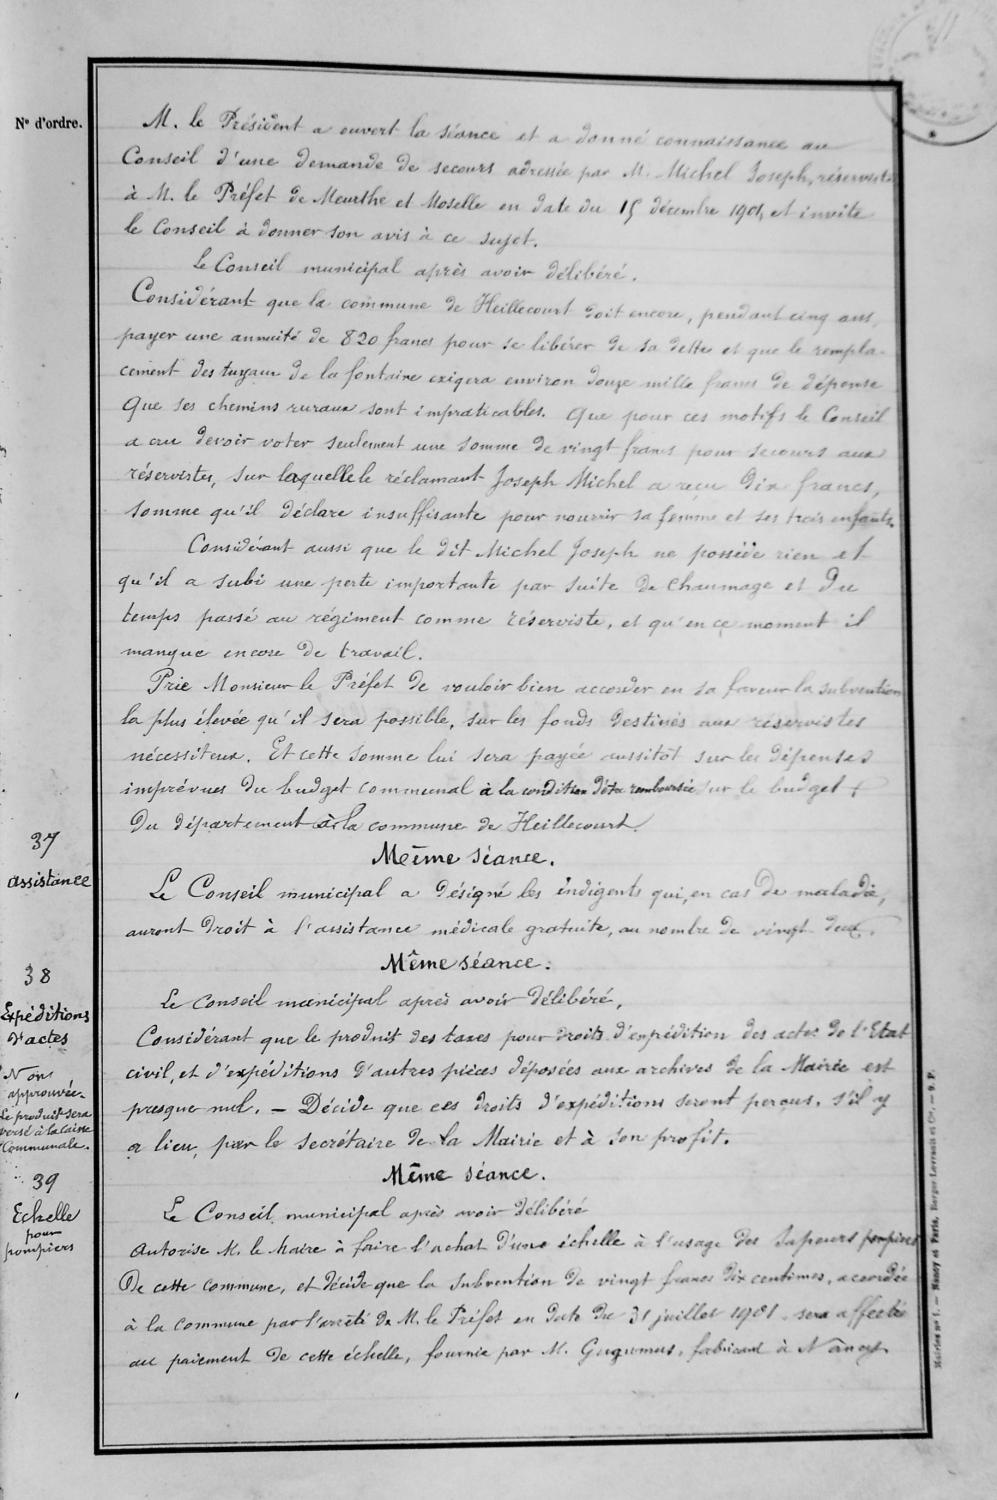 N° d'ordre.
M. le Président a ouvert la séance et a donné connaissance au
Conseil d'une demande de secours adressée par M. Michel Joseph, réserviste
à M. le Préfet de Meurthe et Moselle en date du 15 décembre 1901, et invite
le Conseil à donner son avis à ce sujet.
Le Conseil municipal après avoir délibéré.
Considérant que la commune de Heillecourt doit encore, pendant cinq ans,
payer une annuité de 820 francs pour se libérer de sa dette et que le rempla-
cement des tuyaux de la fontaine exigera environ douze mille francs de dépense
Que ses chemins ruraux sont impraticables. Que pour ces motifs le Conseil
a cru devoir voter seulement une somme de vingt francs pour secours aux
réservistes, sur laquelle le réclamant Joseph Michel a reçu dix francs,
somme qu'il déclare insuffisante pour nourrir sa femme et ses trois enfants.
Considérant aussi que le dit Michel Joseph ne possède rien et
qu'il a subi une perte importante par suite de chaumage et du
temps passé au régiment comme réserviste, et qu'en ce moment il
manque encore de travail.
Prie Monsieur le Préfet de vouloir bien accorder en sa faveur la subvention
la plus élevée qu'il sera possible, sur les fonds destinés aux réservistes
nécessiteux. Et cette somme lui sera payée aussitôt sur les dépenses
imprévues du budget communal à la condition d'être remboursée sur le budget
du département à la commune de Heillecourt.
Même séance.
37
assistance
Le Conseil municipal a désigné les indigents qui, en cas de maladie,
auront droit à l'assistance médicale gratuite, au nombre de vingt deux.
Même séance.
38
Expéditions
d'actes
Non
approuvée.
Le produit sera
versé à la caisse
Communale.
Le Conseil municipal après avoir délibéré,
Considérant que le produit des taxes pour droits d'expédition des actes de l'Etat
civil, et d'expéditions d'autres pièces déposées aux archives de la Mairie est
presque nul. — Décide que ces droits d'expéditions seront perçus, s'il y
a lieu, par le secrétaire de la Mairie et à son profit.
Même séance.
39
Echelle
pour
pompiers
Le Conseil municipal après avoir délibéré
Autorise M. le Maire à faire l'achat d'une échelle à l'usage des Sapeurs pompiers
de cette commune, et décide que la subvention de vingt francs dix centimes, accordée
à la commune par l'arrêté de M. le Préfet en date du 31 juillet 1901 sera affectée
au paiement de cette échelle, fournie par M. Gugumus, fabricant à Nancy
Mairies n° 1. — Nancy et Paris, Berger-Levrault et Cie. — 9. P.